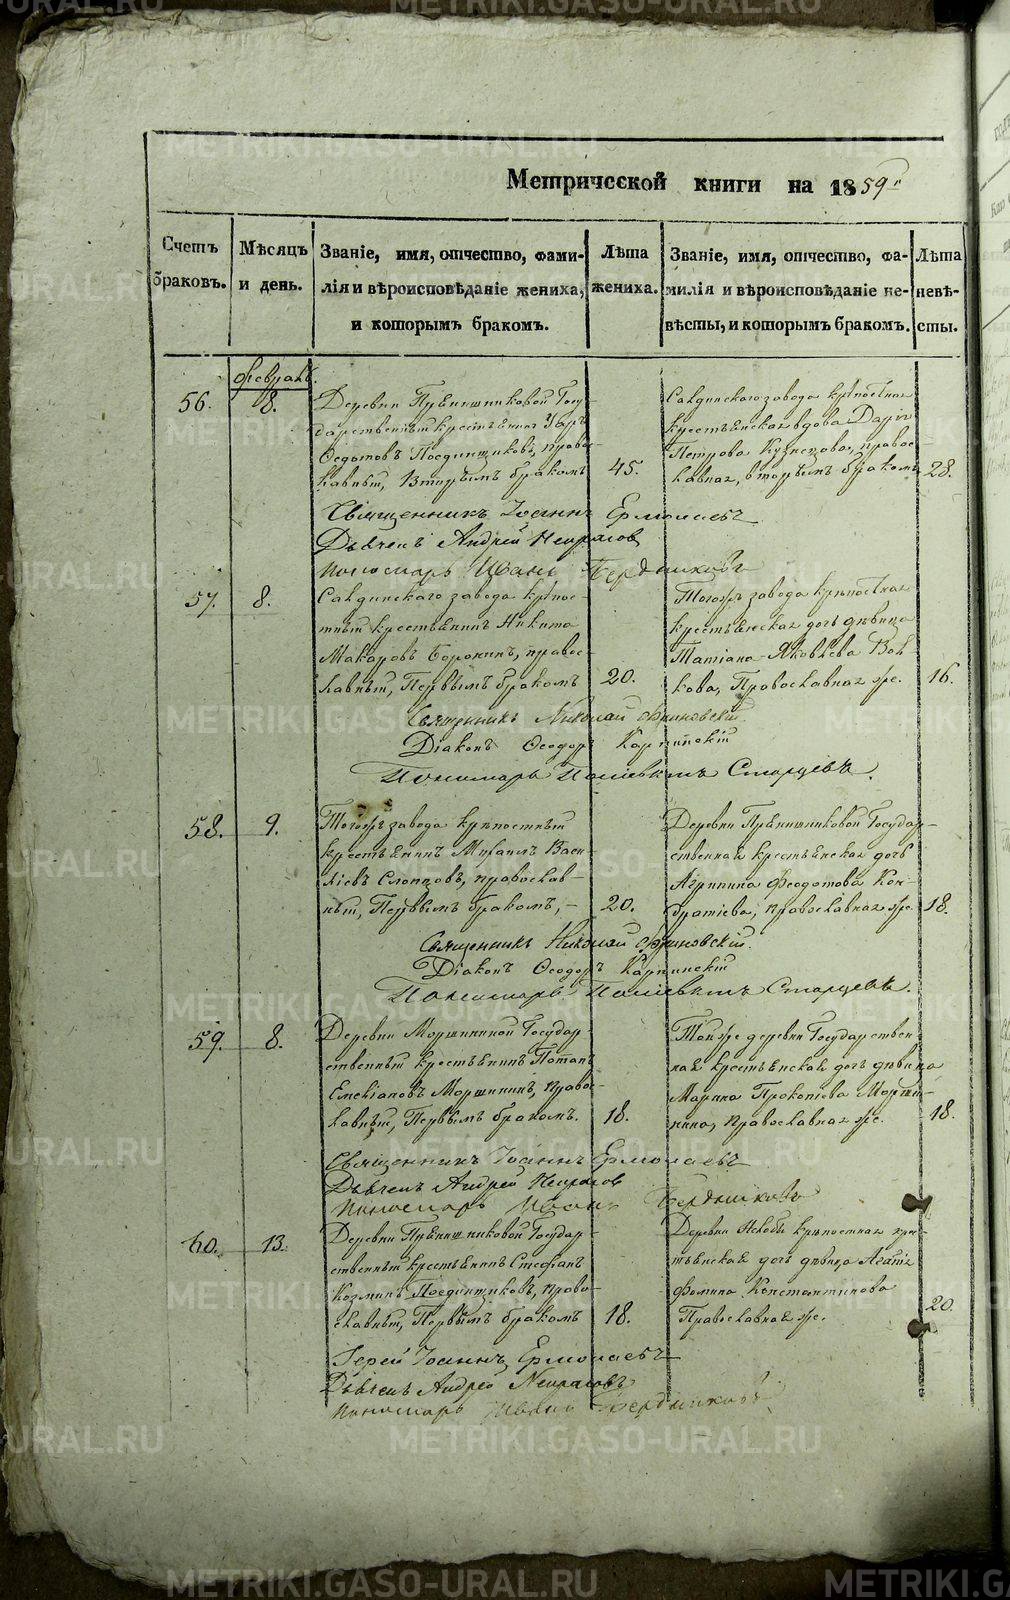 METRIKI.GASO-URAL.RU
Метрической книги на 1859
Счетъ браковъ.
Мѣсяцъ и день.
Званіе, имя, отчество, фами-
лія и вѣроисповѣданіе жениха,
и которымъ бракомъ.
Лѣта
жениха.
Званіе, имя, отчество, фа-
милія и вѣроисповѣданіе не-
вѣсты, и которымъ бракомъ.
Лѣта
невѣ-
сты.
февраль.
56. 8.
Государственный крестьянинъ
Ѳедотовъ Поединщиковъ, право-
славный, Вторымъ бракомъ 45.
Салдинскаго завода крѣпостная
крестьянская вдова Дарія
Петрова Кузнецова, правос-
лавная, вторымъ бракомъ 28.
Священникъ Іоаннъ Ермолаевъ
Дьячекъ Андрей Некрасов
Пономарь Иванъ Бердниковъ
57. 8.
Салдинскаго завода крѣпос-
тный крестьянинъ Никита
Макаровъ Сорокинъ, правос-
лавный, Первымъ бракомъ 20.
Тогожъ завода крѣпостная
крестьянская дочь дѣвица
Татіана Яковлева Вол-
кова, Православная же. 16.
Священникъ Николай
Діаконъ Ѳеодоръ Карпинскій
Пономарь Старцевъ.
58. 9.
Тогожъ завода крѣпостный
крестьянинъ Михаилъ Васи-
ліевъ Слопцовъ, православ-
ный, Первымъ бракомъ, – 20.
Государ-
ственная крестьянская дочь
Агрипина Феодотова Кон-
дратіева, православная же. 18.
Священникъ Николай
Діаконъ Ѳеодоръ Карпинскій
Пономарь Старцевъ.
59. 8.
Деревни Моршининой Государ-
ственный крестьянинъ Потапъ
Емеліановъ Моршининъ, право-
славный, Первымъ бракомъ. 18.
Той же деревни Государствен-
ная крестьянская дочь дѣвица
Марина Прокопіева Морши-
нина, православная же. 18.
Священникъ Іоаннъ Ермолаевъ
Дьячекъ Андрей Некрасов
Пономарь Иванъ Бердниковъ
60. 13.
Государ-
ственный крестьянинъ Стефанъ
Козминъ Поединщиковъ, право-
славный, Первымъ бракомъ 18.
крѣпостная крес-
тьянская дочь дѣвица Агапія
Фомина Константинова
Православная же. 20.
Іерей Іоаннъ Ермолаевъ
Дьячекъ Андрей Некрасовъ
Пономарь Иванъ Бердниковъ